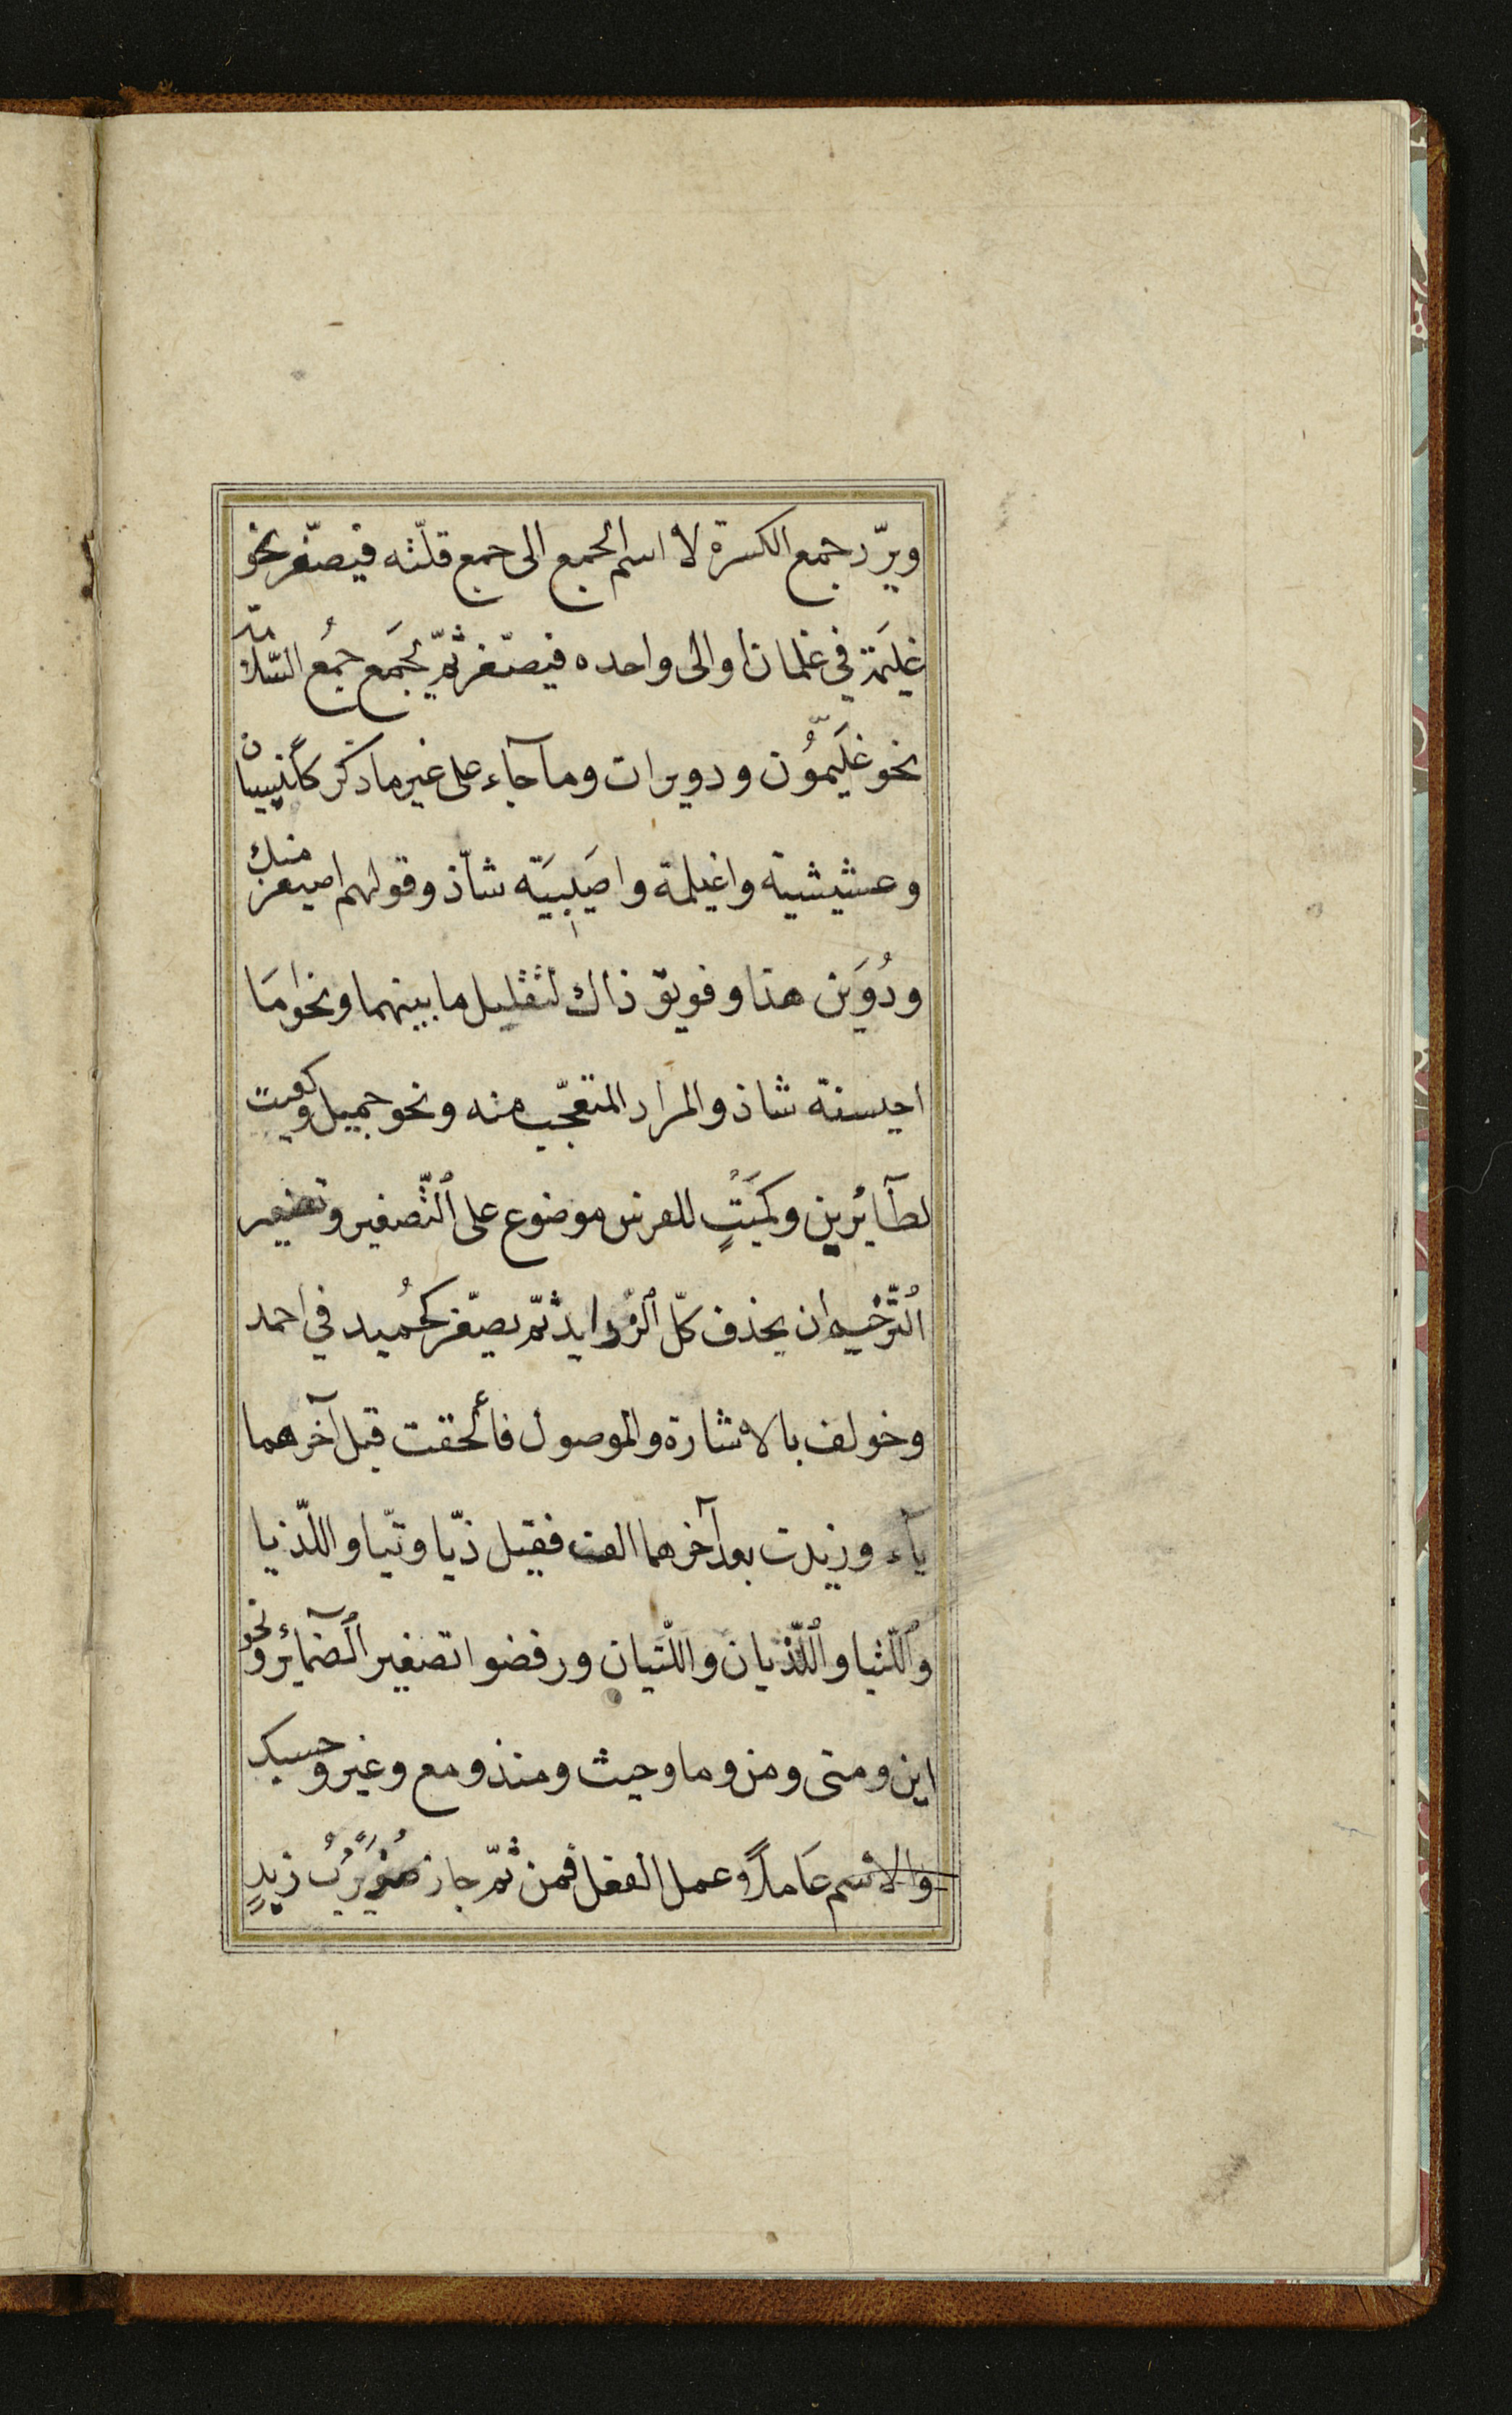 ويرّد جمع الكسرة لا اسم الجمع الى جمع قلّته فيصغّر نحو
غليَمة في غلمان او الى واحده فيصغّر ثمّ يجَمع جمُع السّلامة
نحو غلَيّموُن ودويرات وما جآء على غير ما ذكر كأنيسيان
وعشيشية واغيلمة واصَيبيَة شاّذ وقولهم اصيغر منك
ودُوَين هذا وفويق ذاك لتقليل ما بينهما ونحو ما
احيسنة شاذ والمراد المتعجّب منه ونحو جميل وكعيت
لطآئرين وكمَيْتٍ للفرس موضوع على التّصغير وتصغير
التّرخيم ان يحذف كلّ الزّوايد ثمّ يصغّر كحُميد في احمد
وخولف بالاشارة والموصول فألحقت قبل آخرهما
يآء وزيدت بعد آخرهما الف فقيل ذيّا وتيّا واللّذيا
واللّتيا واللّذيان واللّتيان ورفضوا تصغير الضمآئر ونحو
اين ومتى ومن وما وحيث ومنذ ومع وغير وحسبك
والاسم عَاملاً وعمل الفعل فمن ثمّ جاز ضُوَيْرِبُ زيدٍ